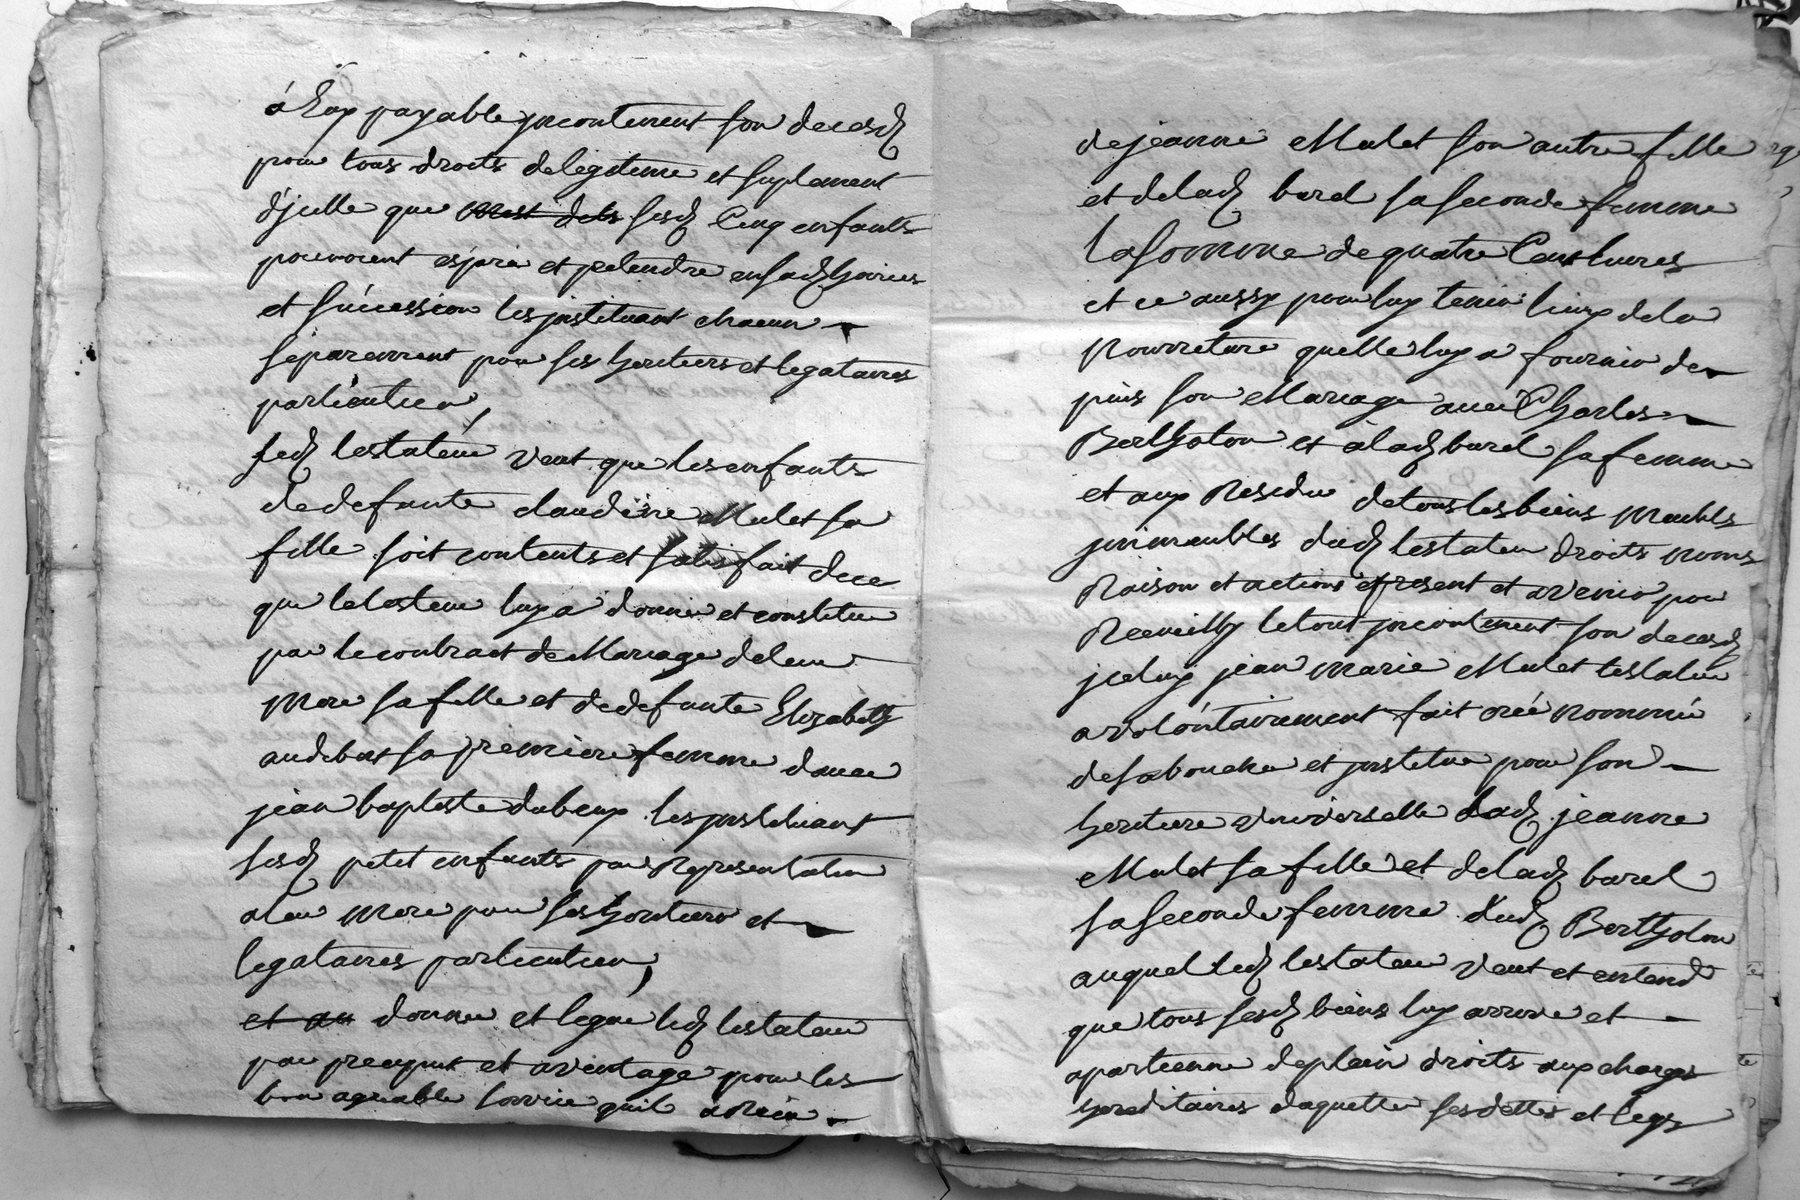 payable jncontinent son decesd
pour tous droits delegitime et suplement
d'jcelle que sesd Cinq enfants
pouvoient esperer et pretendre ensad hoirie
et succession les jnstituant chacun
séparement pour ses heritiers et legataires
particuliers
Led testateur veut que lesenfants
dedefunte claudine Mulet sa
fille soit contents et satisfait dece
que letestateur luy a donné et constitué
par lecontract de Mariage deleur
Mere sa fille et dedefunte Elizabeth
audibert sa premiere femme davec
jean baptiste les jnstituant
sesd petit enfants par Representation
a leur Mere pour ses heritiers et
legataires particuliers
et donne et legue led testateur
par preciput et aventage pour les
bon agreable service quil a Receu
dejeanne Mulet son autre fille
et delad burel sa seconde femme
lasomme dequatre Cent livres
et ce aussy pour luy tenir lieux dela
Nourriture quelle luy a fournir de
puis son Mariage avec Charles
Bertholon et alad burel sa femme
et aux Residu detous les biens Meubles
jmmeubles dud testateur droits noms
Raison et actions present et avenir pour
Recueilly letout jncontinent son decesd
jceluy jean marie Mulet testateur
a volontairement fait créé nommé
desabouche et jnstitue pour son
heritiere universelle lad jeanne
Mulet sa fille et delad burel
sa seconde femme dud Bertholon
auquel led testateur veut et entend
que tous sesd biens luy arrive et
apartienne deplein droits aux charges
hereditaires daquitter ses dettes et legs